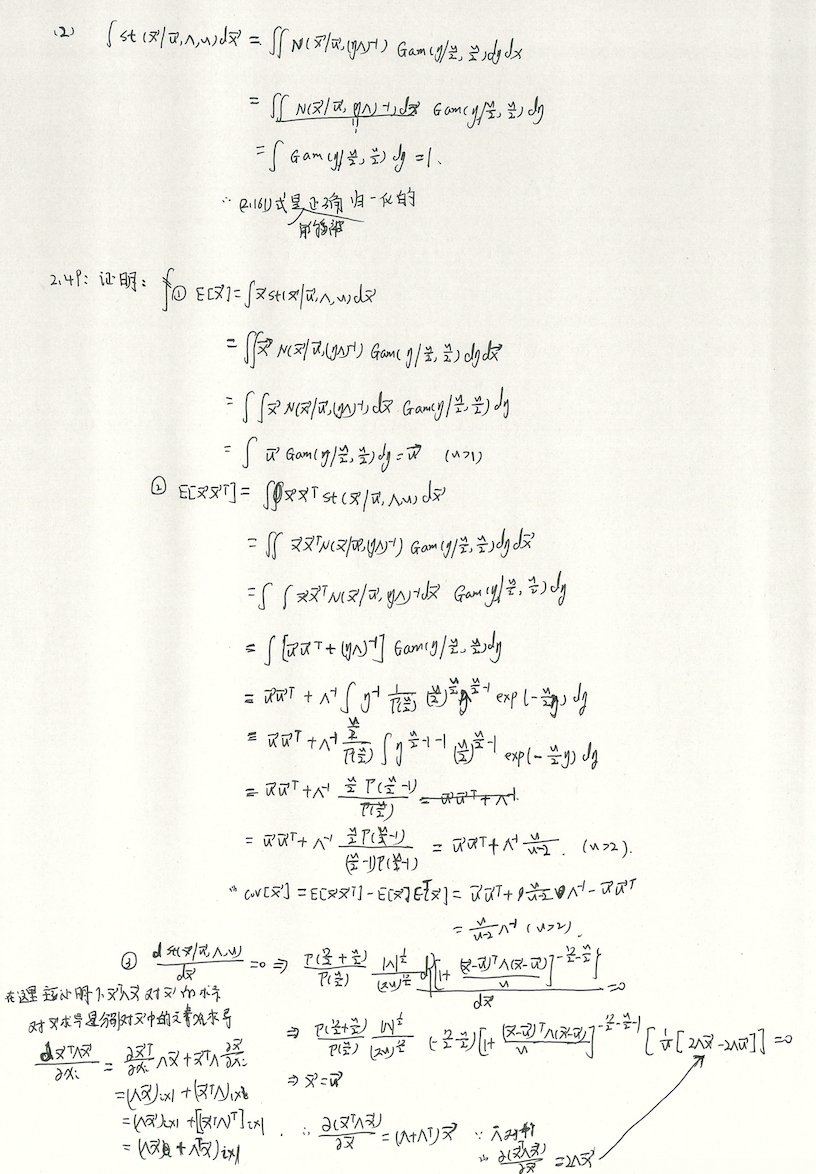 (2) ∫ st(x⃗|u⃗,Λ,ν)dx⃗ = ∬ N(x⃗|u⃗,(ηΛ)⁻¹) Gam(η|ν/2, ν/2)dηdx
= ∬ N(x⃗|u⃗,(ηΛ)⁻¹)dx⃗ Gam(η|ν/2, ν/2) dη
= ∫ Gam(η|ν/2, ν/2) dη = 1.
∴ (2.161)式是正确归一化的
能够被
2.49: 证明: ① E[x⃗] = ∫ x⃗ st(x⃗|u⃗,Λ,ν)dx⃗
= ∬ x⃗ N(x⃗|u⃗,(ηΛ)⁻¹) Gam(η|ν/2, ν/2) dηdx⃗
= ∫ ∫ x⃗ N(x⃗|u⃗,(ηΛ)⁻¹)dx⃗ Gam(η|ν/2, ν/2) dη
= ∫ u⃗ Gam(η|ν/2, ν/2)dη = u⃗ (ν>1)
② E[x⃗x⃗ᵀ] = ∫ x⃗x⃗ᵀ st(x⃗|u⃗,Λ,ν) dx⃗
= ∬ x⃗x⃗ᵀ N(x⃗|u⃗,(ηΛ)⁻¹) Gam(η|ν/2, ν/2)dηdx⃗
= ∫ ∫ x⃗x⃗ᵀ N(x⃗|u⃗,(ηΛ)⁻¹)dx⃗ Gam(η|ν/2, ν/2) dη
= ∫ [u⃗u⃗ᵀ + (ηΛ)⁻¹] Gam(η|ν/2, ν/2)dη
= u⃗u⃗ᵀ + Λ⁻¹ ∫ η⁻¹ 1/Γ(ν/2) (ν/2)^(ν/2) η^(ν/2-1) exp(-ν/2 η) dη
= u⃗u⃗ᵀ + Λ⁻¹ (ν/2)/Γ(ν/2) ∫ η^(ν/2-1-1) (ν/2)^(ν/2-1) exp(-ν/2 η) dη
= u⃗u⃗ᵀ + Λ⁻¹ (ν/2 Γ(ν/2-1))/Γ(ν/2) = u⃗u⃗ᵀ + Λ⁻¹
= u⃗u⃗ᵀ + Λ⁻¹ (ν/2 Γ(ν/2-1))/((ν/2-1)Γ(ν/2-1)) = u⃗u⃗ᵀ + Λ⁻¹ ν/(ν-2). (ν>2).
∴ cov[x⃗] = E[x⃗x⃗ᵀ] - E[x⃗]Eᵀ[x⃗] = u⃗u⃗ᵀ + ν/(ν-2) Λ⁻¹ - u⃗u⃗ᵀ
= ν/(ν-2) Λ⁻¹ (ν>2).
③ d st(x⃗|u⃗,Λ,ν)/dx⃗ = 0 ⇒ Γ(D/2+ν/2)/Γ(ν/2) |Λ|^(1/2)/(πν)^(D/2) d{[1+(x⃗-u⃗)ᵀΛ(x⃗-u⃗)/ν]^(-D/2-ν/2)}/dx⃗ = 0
在这里证明下x⃗ᵀΛx⃗对x⃗的求导
对x⃗求导是分别对x⃗中的元素求导
⇒ Γ(D/2+ν/2)/Γ(ν/2) |Λ|^(1/2)/(πν)^(D/2) (-D/2-ν/2)[1+(x⃗-u⃗)ᵀΛ(x⃗-u⃗)/ν]^(-D/2-ν/2-1) [1/ν[2Λx⃗-2Λu⃗]] = 0
⇒ x⃗=u⃗
dx⃗ᵀΛx⃗/∂xᵢ = ∂x⃗ᵀ/∂xᵢ Λx⃗ + x⃗ᵀΛ ∂x⃗/∂xᵢ
= (Λx⃗)ᵢₓ₁ + (x⃗ᵀΛ)₁ₓᵢ
= (Λx⃗)ᵢₓ₁ + [(x⃗ᵀΛ)ᵀ]ᵢₓ₁
= (Λx⃗ + Λᵀx⃗)ᵢₓ₁
∴ ∂(x⃗ᵀΛx⃗)/∂x⃗ = (Λ+Λᵀ)x⃗ ∵ Λ对称
∴ ∂(x⃗ᵀΛx⃗)/∂x⃗ = 2Λx⃗